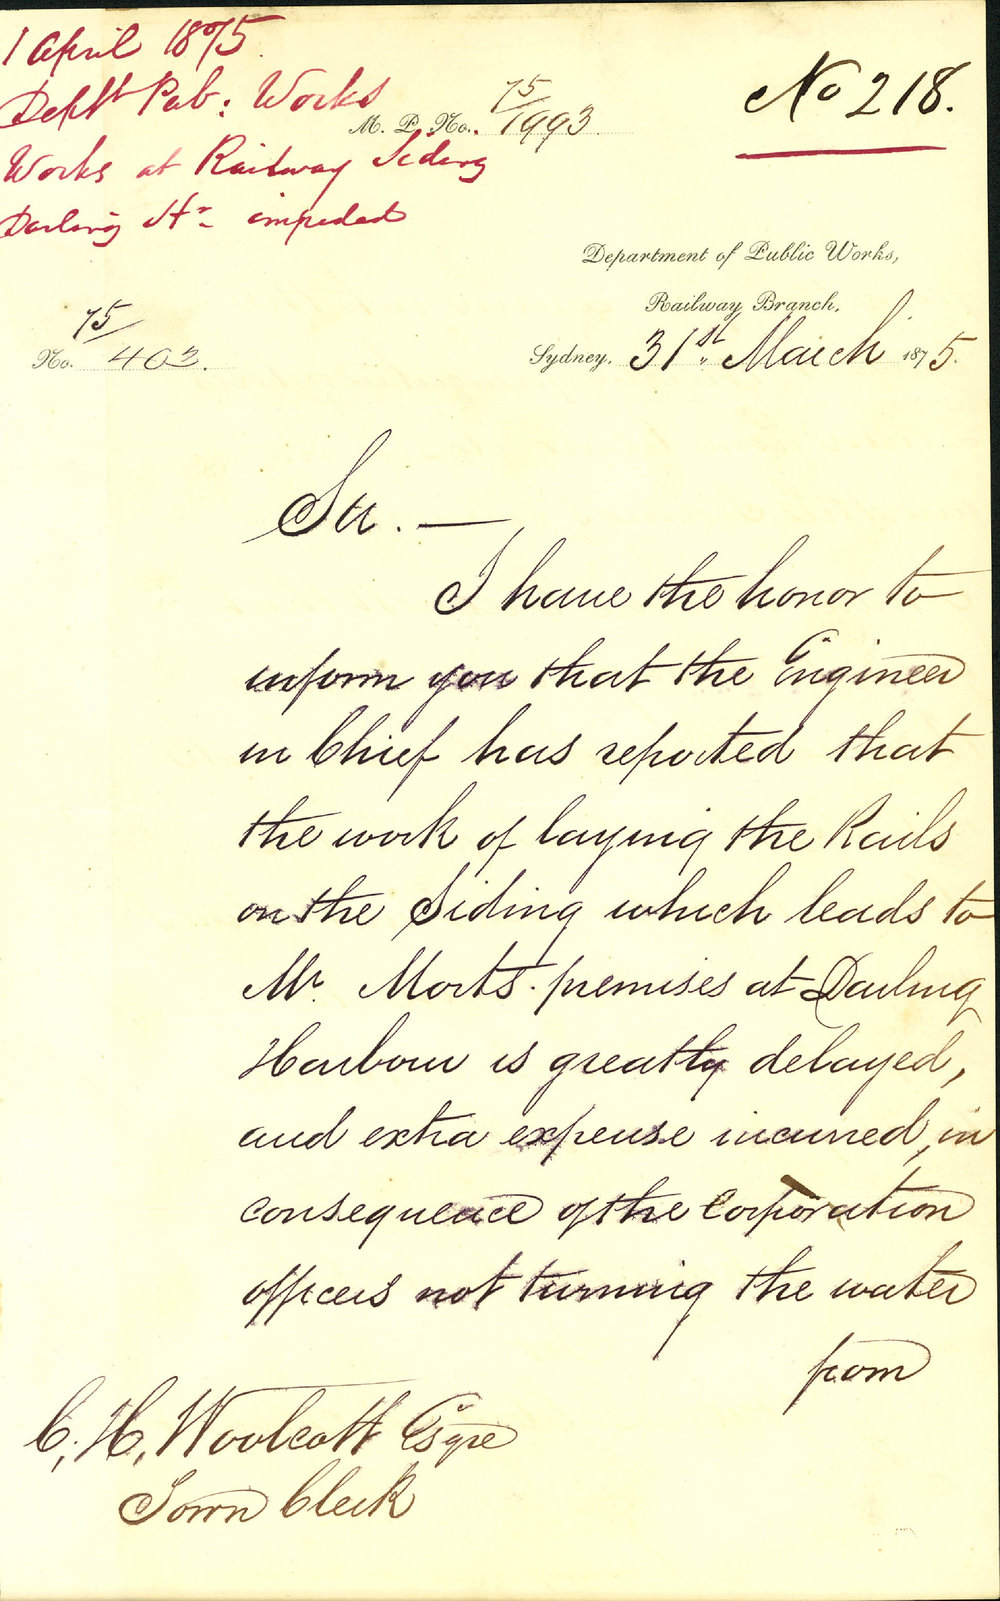 1 April 1875.
Deptt Pub: Works
Works at Railway Siding
Darling Hr. impeded
M. P. No. 75/1993.
No 218.
Department of Public Works,
Railway Branch.
No. 75/403.
Sydney, 31st March 1875.
Sir. —
I have the honor to
inform you that the Engineer
in Chief has reported that
the work of laying the Rails
on the Siding which leads to
Mr. Morts premises at Darling
Harbour is greatly delayed,
and extra expense incurred, in
consequence of the Corporation
officers not turning the water
from
C. H. Woolcott Esqre
Town Clerk